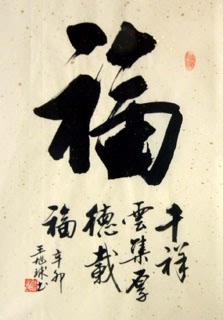 福
千祥
雲集厚
德載
福
辛卯
王旭球书